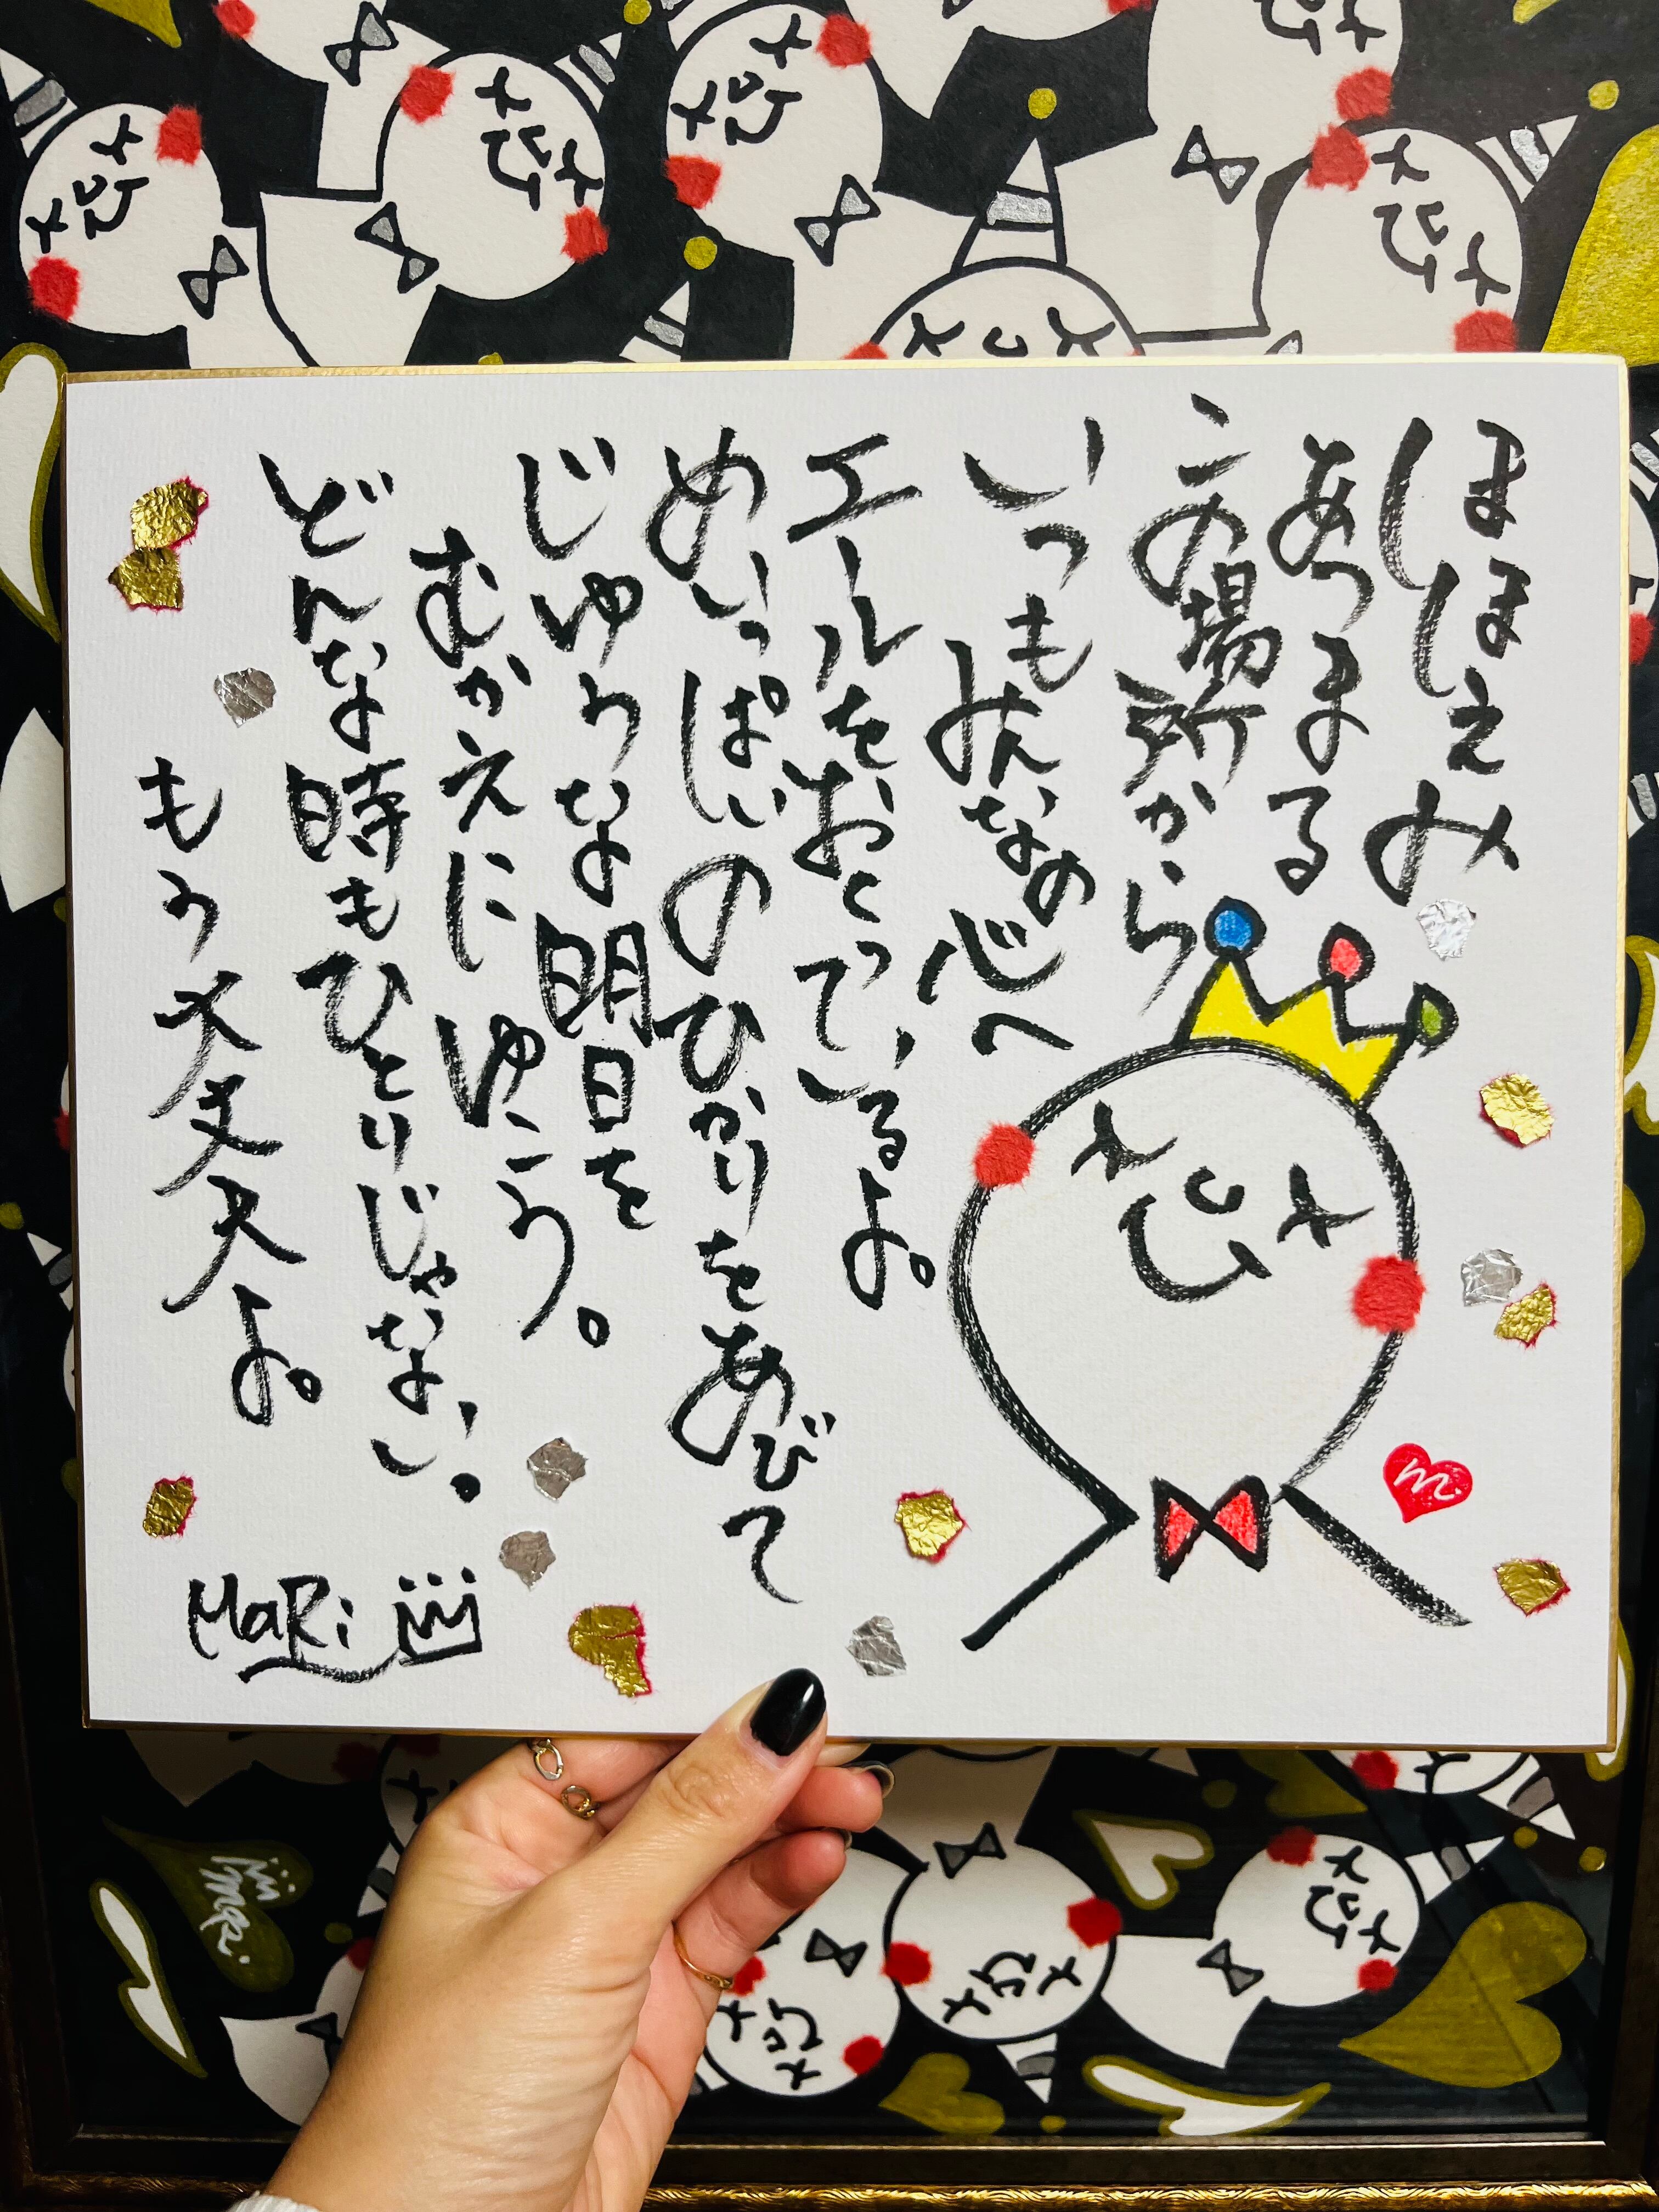 ほほえみ
あつまる
この場所から
いつもみんなの心へ
エールをおくっているよ。
めいっぱいのひかりをあびて
じゆうな明日を
むかえにゆこう。
どんな時もひとりじゃない。
もう大丈夫よ。
MaRi
m.
mari